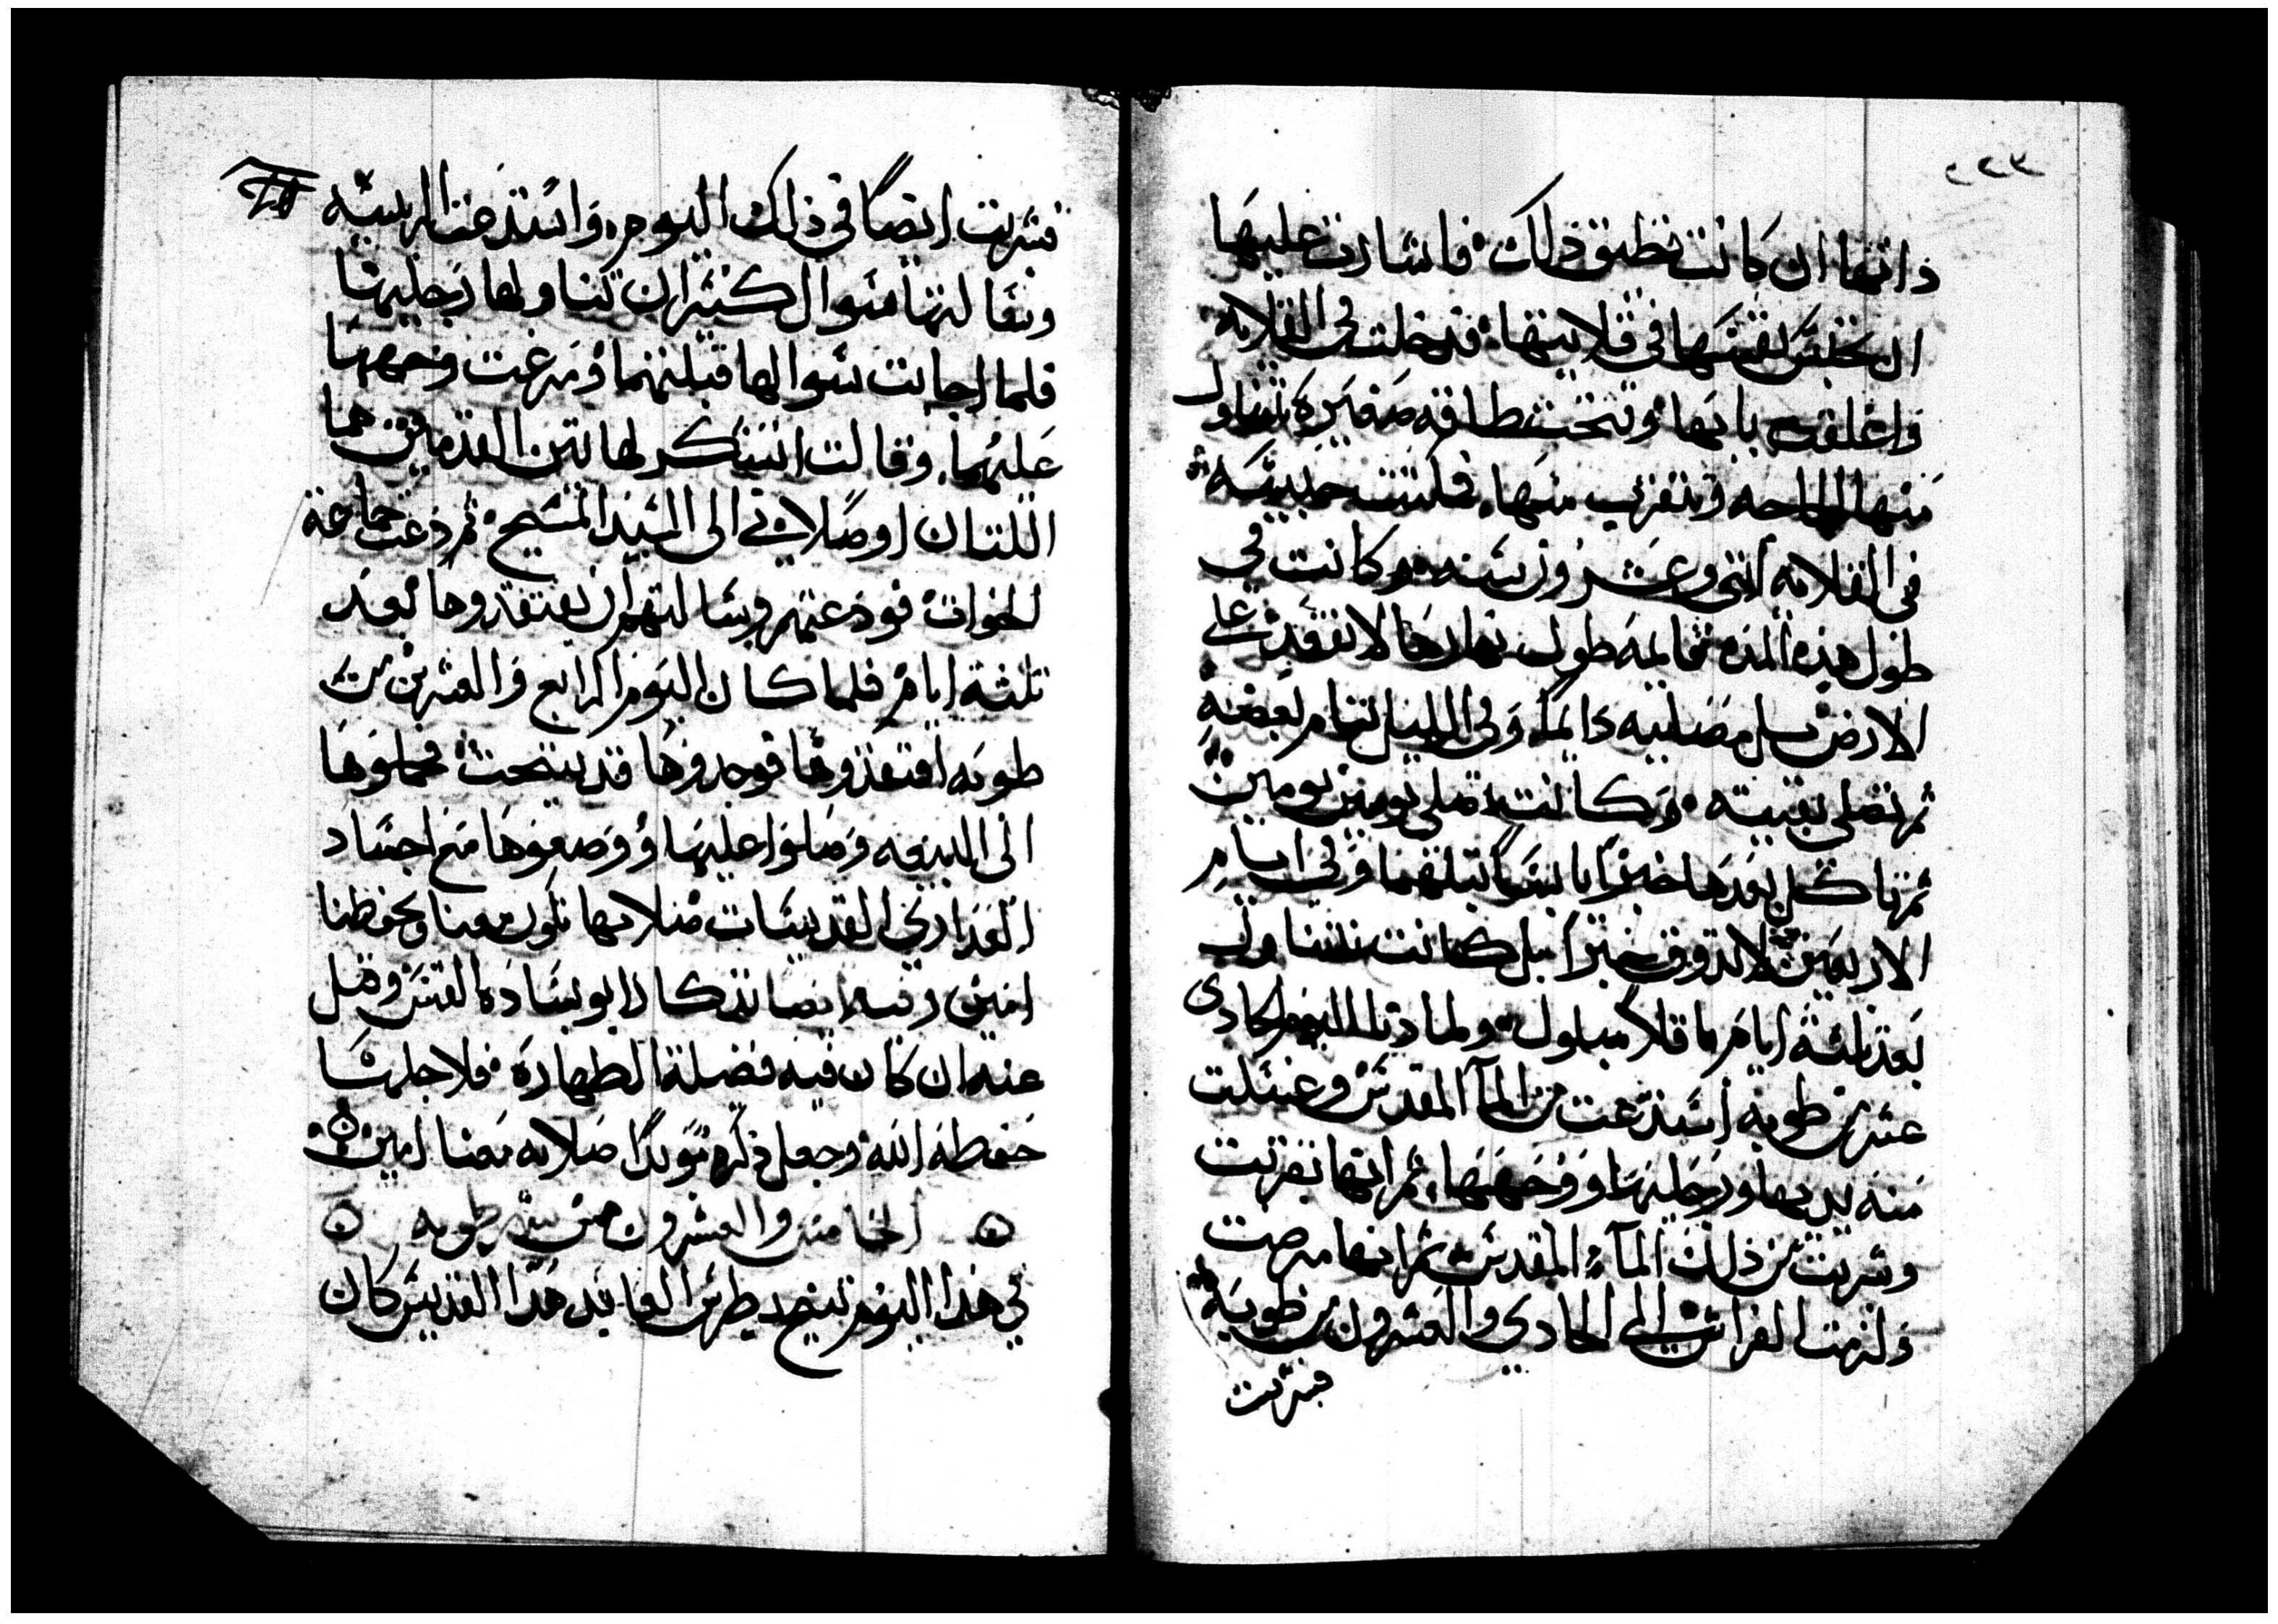 ذاتها ان كانت تطيق ذلك فاشارت عليها
ان تحبس نفسها في قلايتها فدخلت في القلايه
واغلقت بابها وفتحت طاقه صغيره تتناول
منها الحاجه وتتقرب منها فلبثت حبيسه
في القلايه اثني وعشرون سنه وكانت في
طول هذه المده طول نهارها لا تقعد على
الارض بل مصليه دايما وفي الليل تنام بعضه
ثم تصلي بقيته وكانت تصلي يومين يومين
ثم تاكل بعدها خبزا يابسا تبلهما وفي ايام
الاربعين لا تدوق خبزا بل كانت تتناول
بعد ثلثة ايام باقلا مبلول ولما دنا اليوم الحادي
عشر من طوبه استدعت من المآ المقدس وغسلت
منه يديها ورجليها ووجهها ثم انها تقربت
وشربت من ذلك المآء المقدس ثم انها مرضت
ولزمت الفراش الى الحادي والعشرون من طوبه
فتقربت
ايضا في ذلك اليوم واستدعت الريسه
وسالتها سوال كثير ان تناولها رجليها
فلما اجابت سوالها قبلتهما ومرغت وجهها
عليهما وقالت اشكر لهاتين القدمين هما
اللتان اوصلاني الى السيد المسيح ثم دعت جماعة
الخوات فودعتهم وسالتهم ان يفتقدوها بعد
ثلثة ايام فلما كان اليوم الرابع والعشرين من
طوبه افتقدوها فوجدوها قد تنيحت فحملوها
الى البيعه وصلوا عليها ووضعوها مع اجساد
العذاري القديسات صلاتها تكون معنا وتحفظنا
امين وفيه ايضا تذكار ابو بساده القس وقيل
عنه ان كان فيه فضلة الطهاره فلاجلها
حفظه الله وجعل ذكره موبدا صلاته معنا امين
الخامس والعشرون من شهر طوبه
في هذا اليوم تنيح بطرس العابد هذا القديس كان